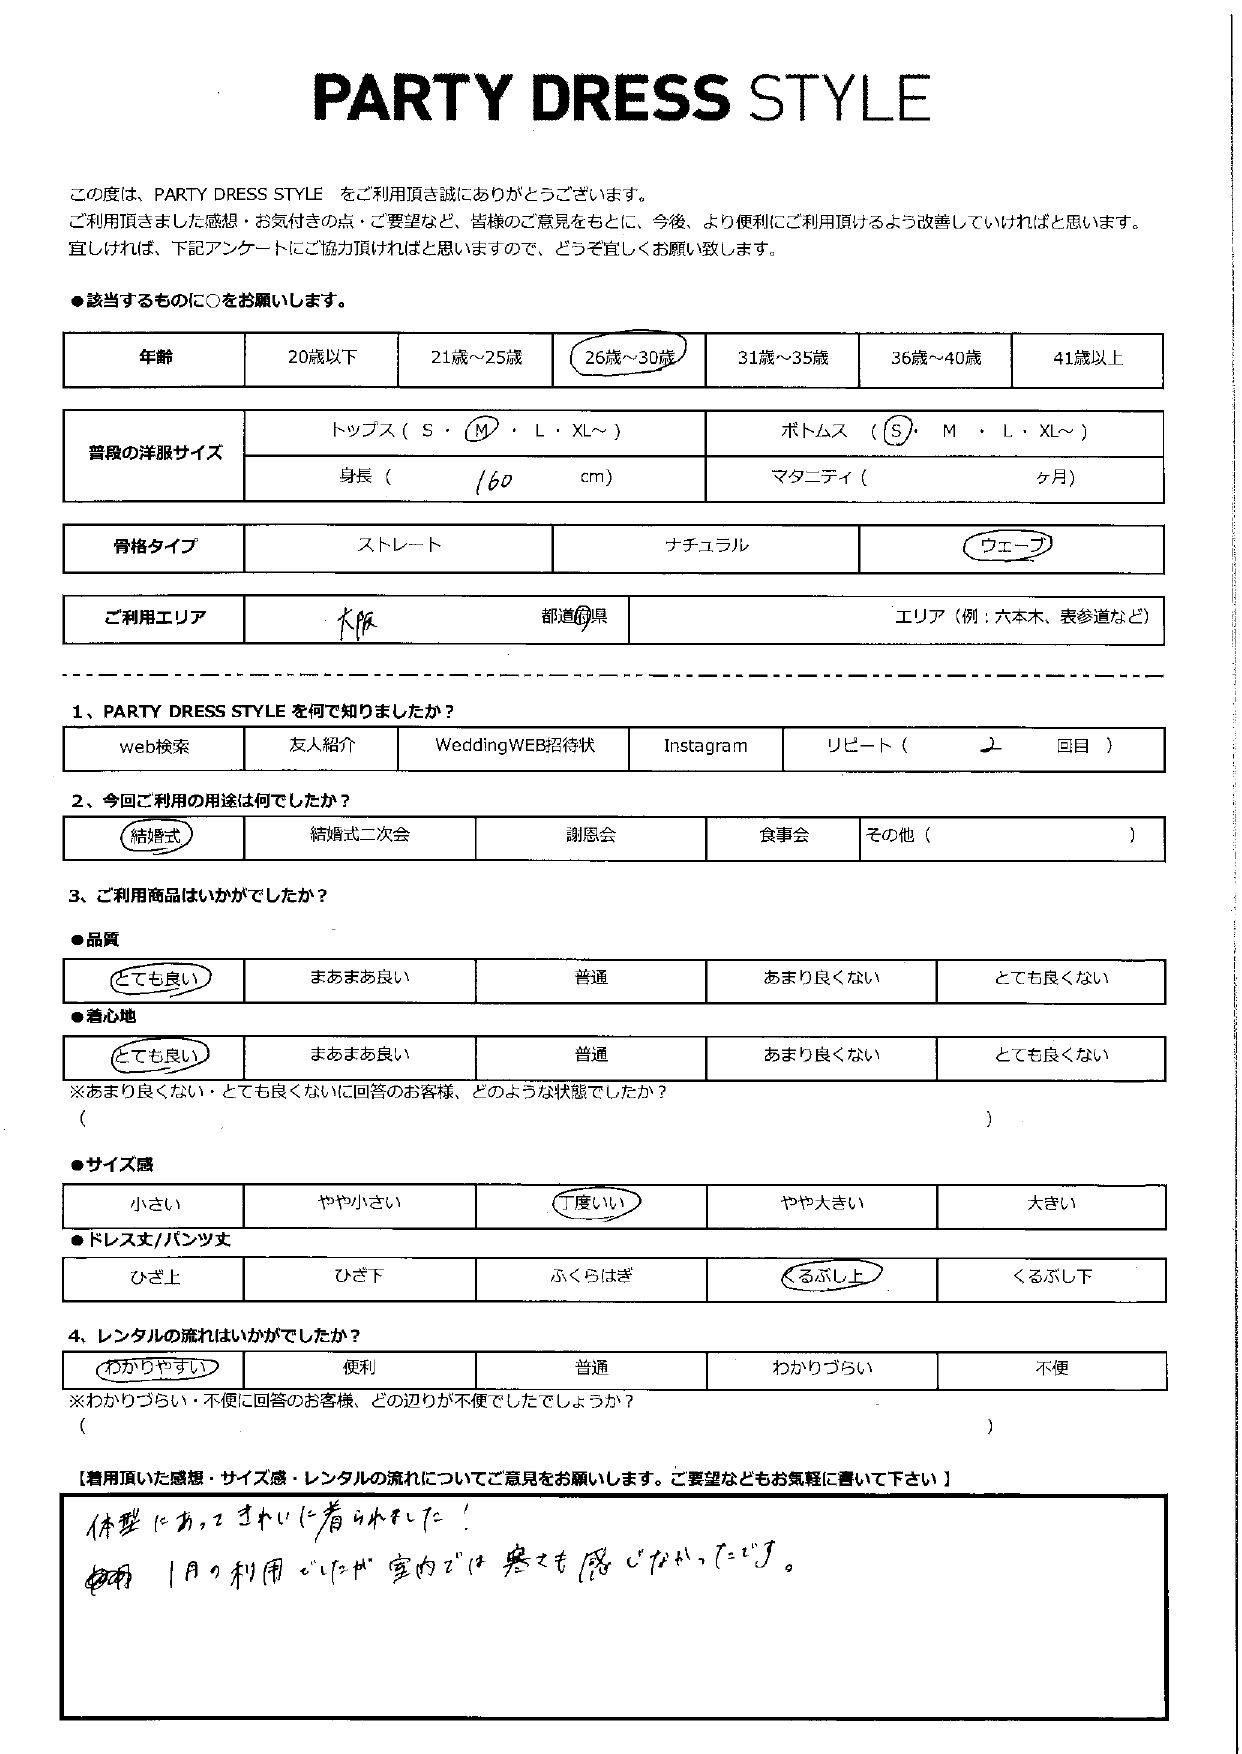 PARTY DRESS STYLE
この度は、PARTY DRESS STYLE をご利用頂き誠にありがとうございます。
ご利用頂きました感想・お気付きの点・ご要望など、皆様のご意見をもとに、今後、より便利にご利用頂けるよう改善していければと思います。
宜しければ、下記アンケートにご協力頂ければと思いますので、どうぞ宜しくお願い致します。
●該当するものに○をお願いします。
年齢 20歳以下 21歳～25歳 26歳～30歳 31歳～35歳 36歳～40歳 41歳以上
普段の洋服サイズ トップス ( S ・ M ・ L ・ XL～ ) ボトムス ( S ・ M ・ L ・ XL～ )
身長 ( 160 cm) マタニティ ( ヶ月)
骨格タイプ ストレート ナチュラル ウェーブ
ご利用エリア 大阪 都道府県 エリア（例：六本木、表参道など）
1、PARTY DRESS STYLE を何で知りましたか？
web検索 友人紹介 WeddingWEB招待状 Instagram リピート ( 2 回目 )
2、今回ご利用の用途は何でしたか？
結婚式 結婚式二次会 謝恩会 食事会 その他 ( )
3、ご利用商品はいかがでしたか？
●品質
とても良い まあまあ良い 普通 あまり良くない とても良くない
●着心地
とても良い まあまあ良い 普通 あまり良くない とても良くない
※あまり良くない・とても良くないに回答のお客様、どのような状態でしたか？
( )
●サイズ感
小さい やや小さい 丁度いい やや大きい 大きい
●ドレス丈/パンツ丈
ひざ上 ひざ下 ふくらはぎ くるぶし上 くるぶし下
4、レンタルの流れはいかがでしたか？
わかりやすい 便利 普通 わかりづらい 不便
※わかりづらい・不便に回答のお客様、どの辺りが不便でしたでしょうか？
( )
【着用頂いた感想・サイズ感・レンタルの流れについてご意見をお願いします。ご要望などもお気軽に書いて下さい 】
体型にあってきれいに着られました！
1月の利用でしたが室内では寒さも感じなかったです。